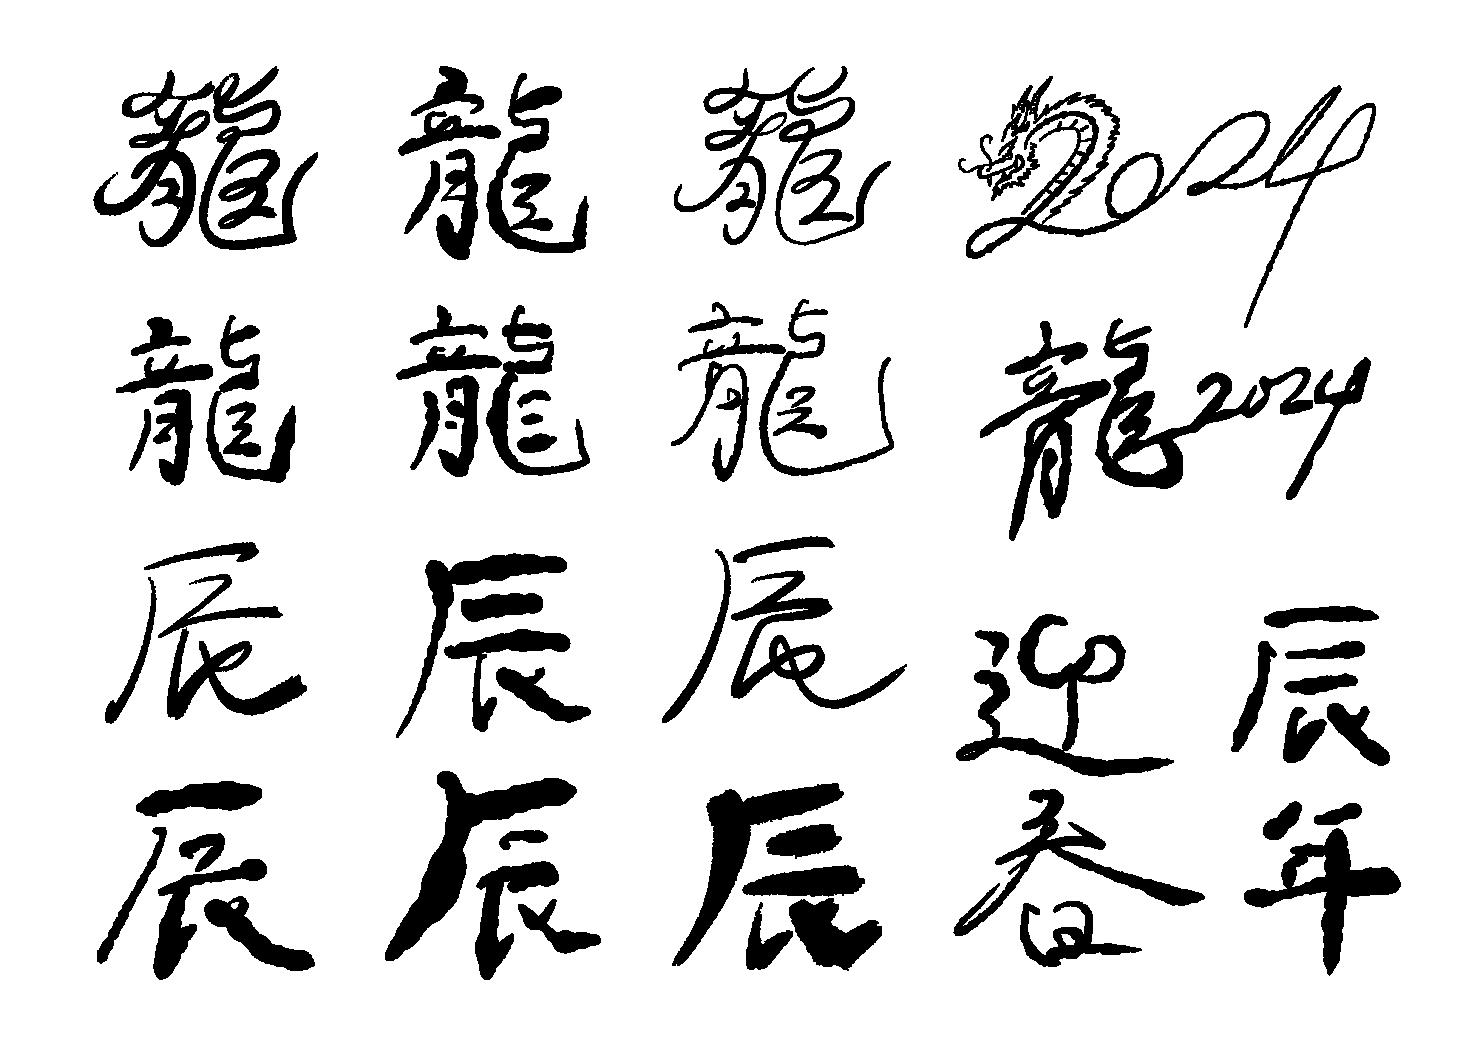 龍 龍 龍 2024
龍 龍 龍 龍2024
辰 辰 辰
辰 辰 辰
迎春
辰年